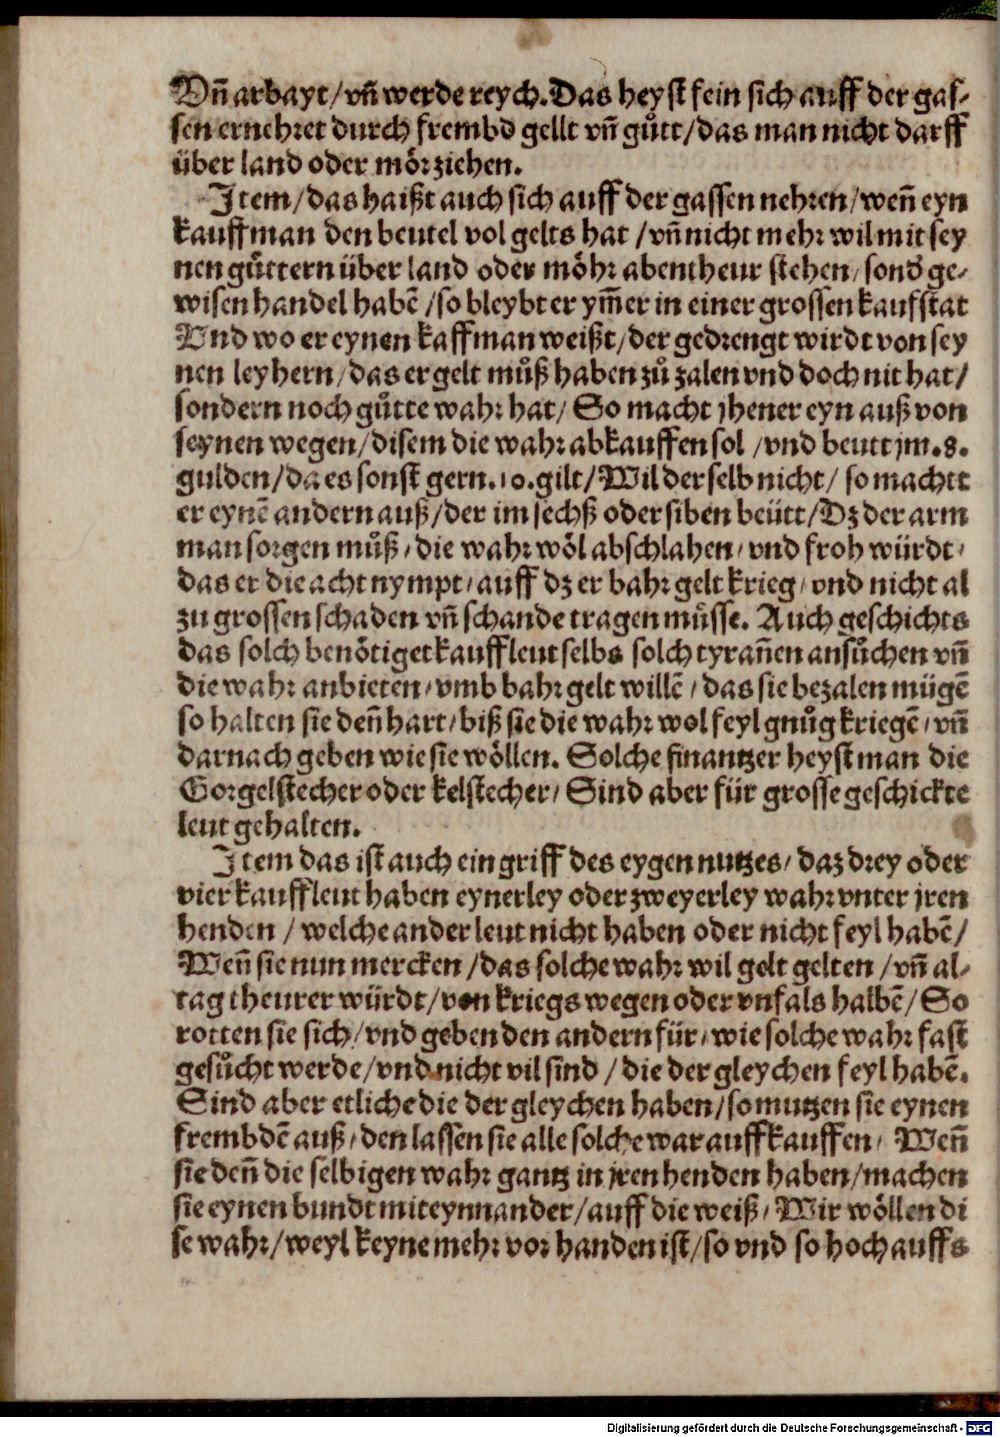 Vñ arbayt/vñ werde reych. Das heyst fein sich auff der gas-
sen ernehret durch frembd gellt vñ guͤtt/das man nicht darff
über land oder mör ziehen.
Item/das haißt auch sich auff der gassen nehren/weñ eyn
kauffman den beutel vol gelts hat/vñ nicht mehr wil mit sey
nen guͤttern über land oder möhr abentheur stehen/sond ge-
wisen handel habē/so bleybt er ym̃er in einer grossen kaufstat
Vnd wo er eynen kaffman weißt/der gedrengt wirdt von sey
nen leyhern/das er gelt muͤß haben zů zalen vnd doch nit hat/
sondern noch guͤtte wahr hat/So macht jhener eyn auß von
seynen wegen/disem die wahr abkauffen sol/vnd beutt jm.8.
gulden/da es sonst gern.10.gilt/Wil der selb nicht/so machtt
er eynē andern auß/der im sechß oder siben beütt/Dz der arm
man sorgen muͤß/die wahr wöl abschlahen/vnd froh würdt/
das er die acht nympt/auff dz er bahr gelt krieg/vnd nicht al
zu grossen schaden vñ schande tragen muͤsse. Auch geschichts
das solch benötiget kauffleut selbs solch tyrañen ansuͤchen vñ
die wahr anbieten/vmb bahr gelt willē/das sie bezalen mügē
so halten sie deñ hart/biß sie die wahr wol feyl gnůg kriegē/vñ
darnach geben wie sie wöllen. Solche finantzer heyst man die
Gorgelstecher oder kelstecher/Sind aber für grosse geschickte
leut gehalten.
Item das ist auch ein griff des eygen nutzes/daz drey oder
vier kauffleut haben eynerley oder zweyerley wahr vnter jren
henden/welche ander leut nicht haben oder nicht feyl habē/
Weñ sie nun mercken/das solche wahr wil gelt gelten/vñ al-
tag theurer würdt/von kriegs wegen oder vnfals halbē/So
rotten sie sich/vnd geben den andern für/wie solche wahr fast
gesuͤcht werde/vnd nicht vil sind/die der gleychen feyl habē.
Sind aber etliche die der gleychen haben/so mutzen sie eynen
frembdē auß/den lassen sie alle solche war auffkauffen/Weñ
sie deñ die selbigen wahr gantz in jren henden haben/machen
sie eynen bundt miteynnander/auff die weiß/Wir wöllen di
se wahr/weyl keyne mehr vorhanden ist/so vnd so hoch auffs
Digitalisierung gefördert durch die Deutsche Forschungsgemeinschaft - DFG